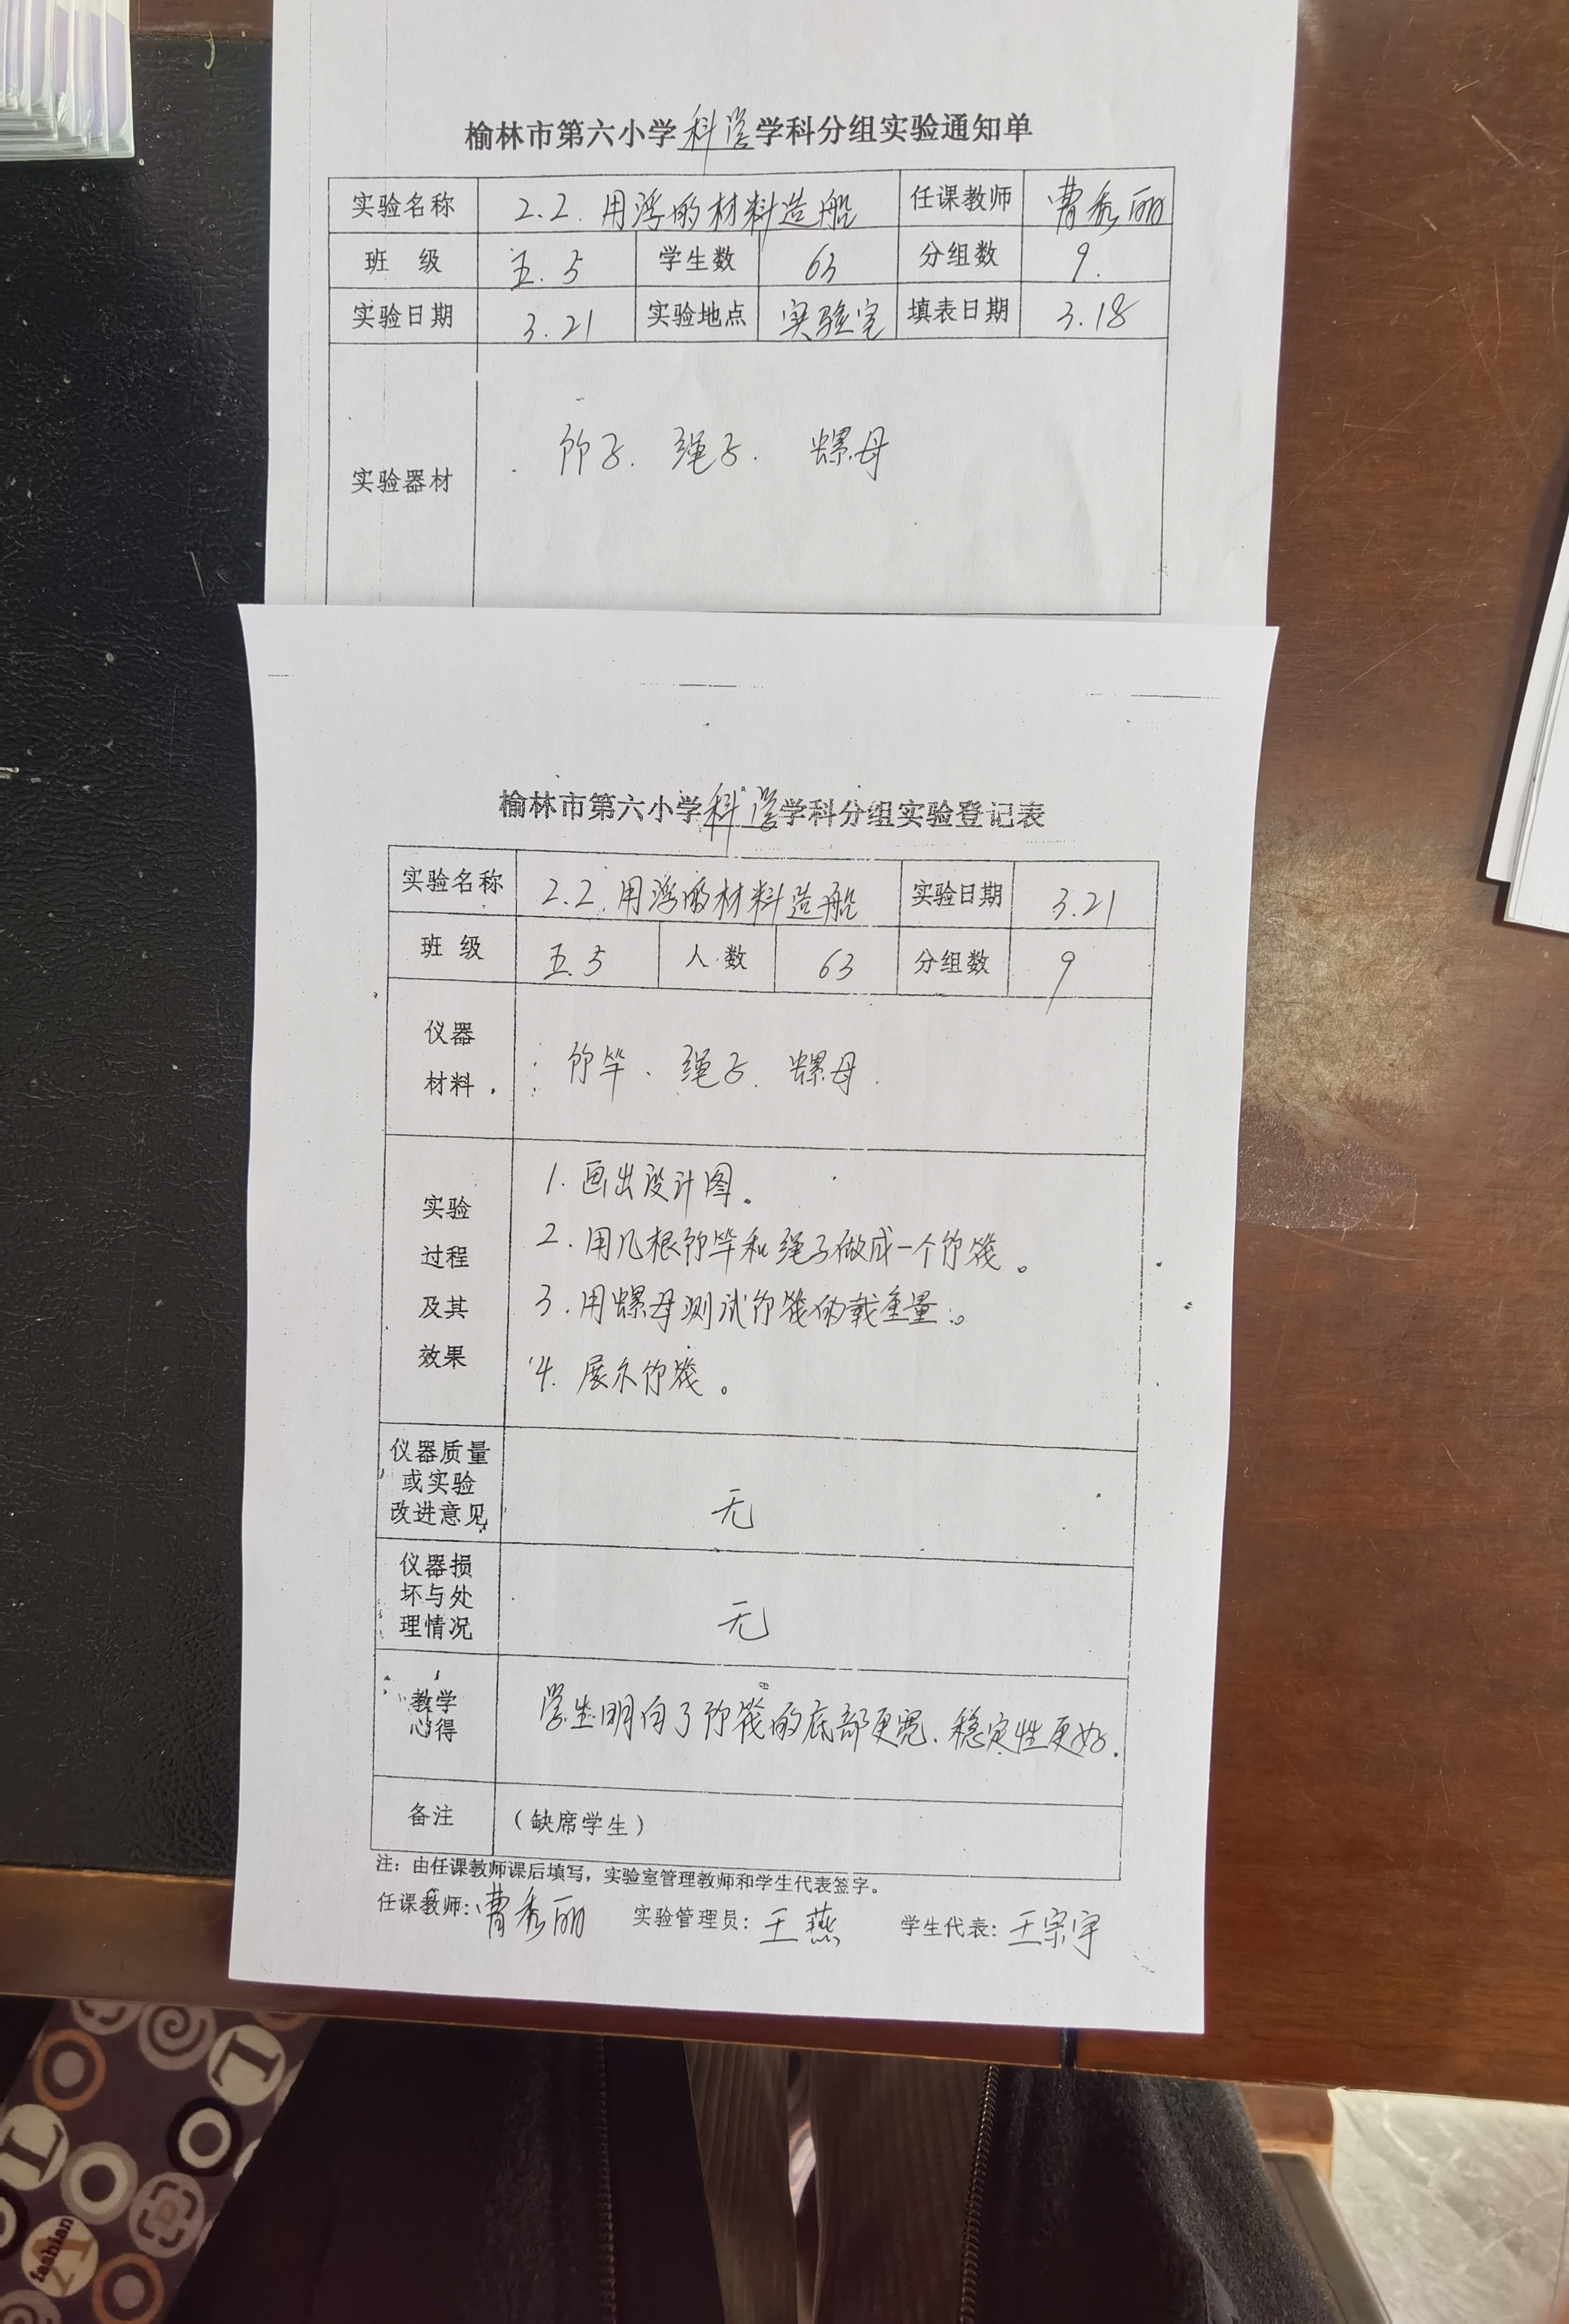 榆林市第六小学科学学科分组实验通知单
实验名称 2.2.用浮的材料造船 任课教师 曹秀丽
班 级 五.5 学生数 63 分组数 9.
实验日期 3.21 实验地点 实验室 填表日期 3.18
实验器材 竹子. 绳子. 螺母
榆林市第六小学科学学科分组实验登记表
实验名称 2.2.用浮的材料造船 实验日期 3.21
班 级 五.5 人数 63 分组数 9
仪器
材料
竹竿、绳子. 螺母.
实验
过程
及其
效果
1.画出设计图。
2.用几根竹竿和绳子做成一个竹筏。
3.用螺母测试竹筏的载重量。
4.展示竹筏。
仪器质量
或实验
改进意见
无
仪器损
坏与处
理情况
无
教学
心得
学生明白了竹筏的底部更宽、稳定性更好.
备注 (缺席学生)
注：由任课教师课后填写，实验室管理教师和学生代表签字。
任课教师：曹秀丽 实验管理员：王燕 学生代表：王宗宇
fashion